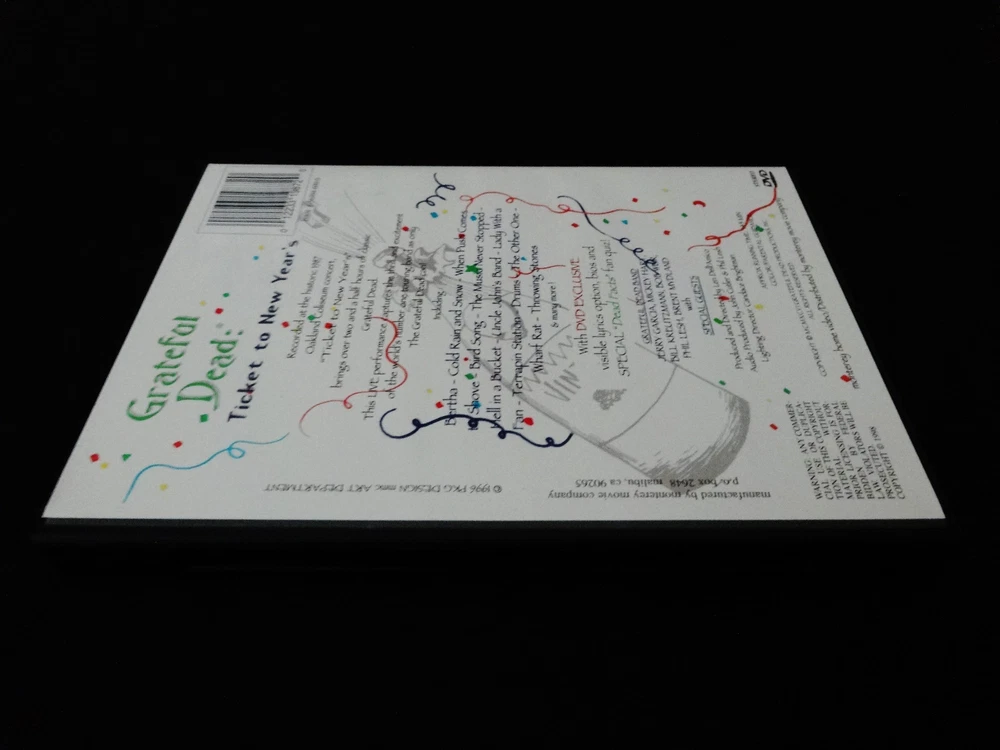 Grateful
Dead:
Ticket to New Year's
Recorded at the historic 1987
Oakland Coliseum concert,
"Ticket to New Year's"
brings over two and a half hours of classic
Grateful Dead.
This LIVE performance captures the and excitement
of the world's number one touring band as only
The Grateful Dead can!
Including:
Bertha - Cold Rain and Snow - When Push Comes
to Shove - Bird Song - The Music Never Stopped -
Hell in a Bucket - Uncle John's Band - Lady With a
Fan - Terrapin Station - Drums - The Other One -
Wharf Rat - Throwing Stones
& many more!
With DVD EXCLUSIVE
visible lyrics option, bios and
SPECIAL "Dead Facts" fan quiz!
GRATEFUL DEAD BAND
JERRY GARCIA, MICKEY HART,
BILL KREUTZMANN, BOB WEIR,
PHIL LESH, BRENT MYDLAND
with
SPECIAL GUESTS
Produced and Directed by Len Dell'Amico
Audio Produced by John Cutler & Phil Lesh
Lighting Director Candace Brightman
monterey home video/Distributed by monterey movie company
DVD
WARNING: ANY COMMER-
CIAL USE OR DUPLICA-
TION OF THIS COPYRIGHT
MATERIAL WITHOUT
PRIOR LICENSING IS FOR-
BIDDEN BY FEDERAL
LAW. VIOLATORS WILL BE
PROSECUTED.
COPYRIGHT © 1998
manufactured by monterey movie company
p.o. box 2648 malibu, ca 90265
© 1996 PKG DESIGN mmc ART DEPARTMENT